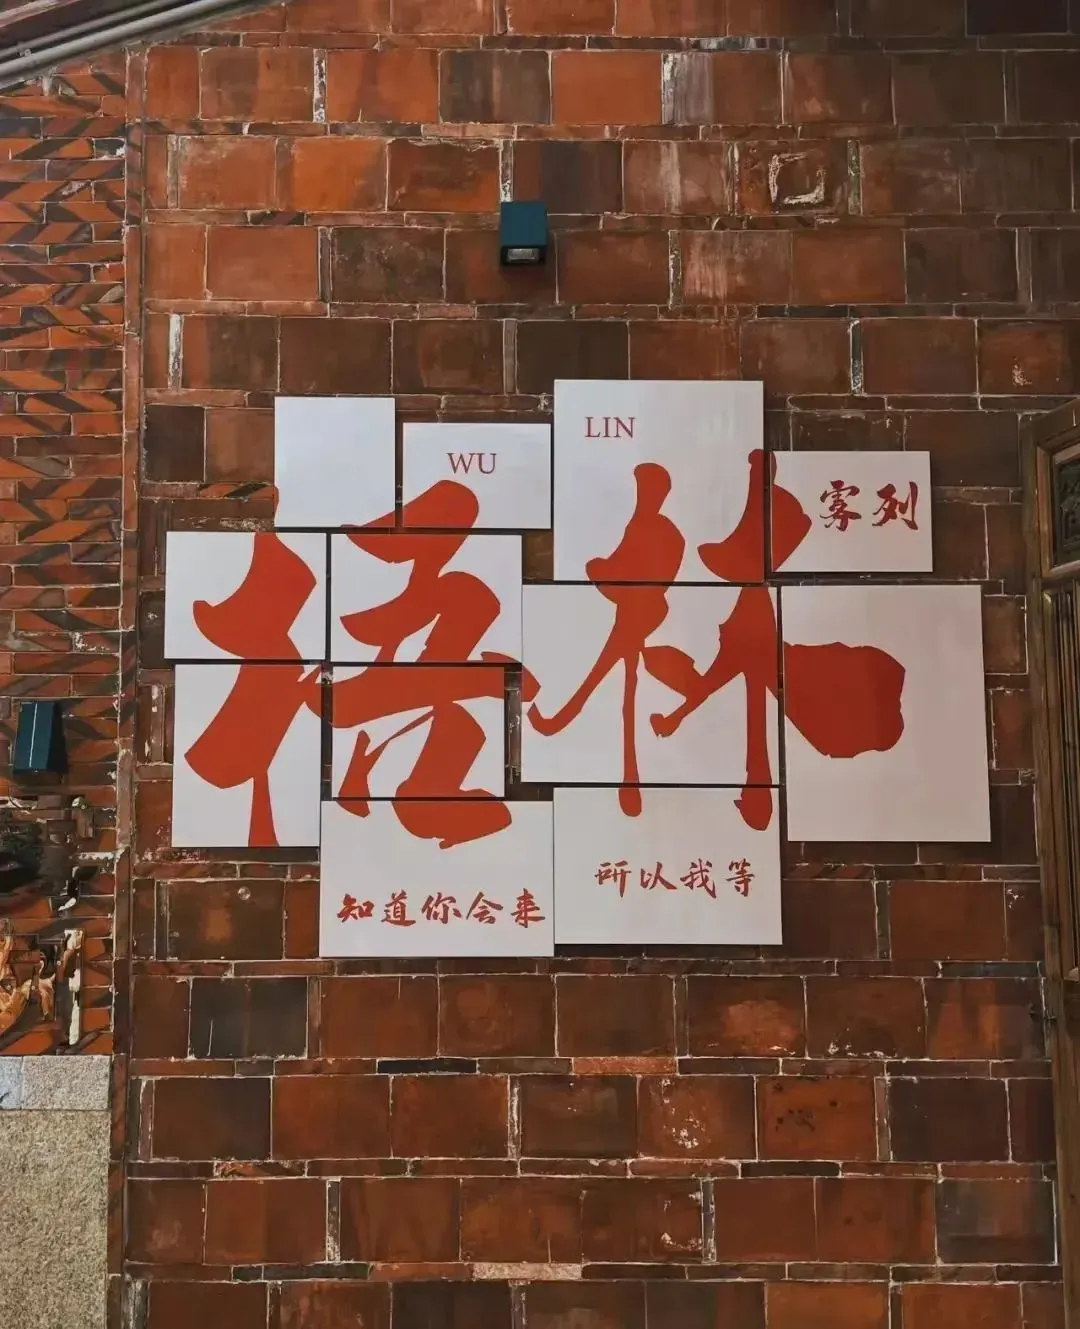 WU
LIN
雾列
梧林
知道你会来
所以我等